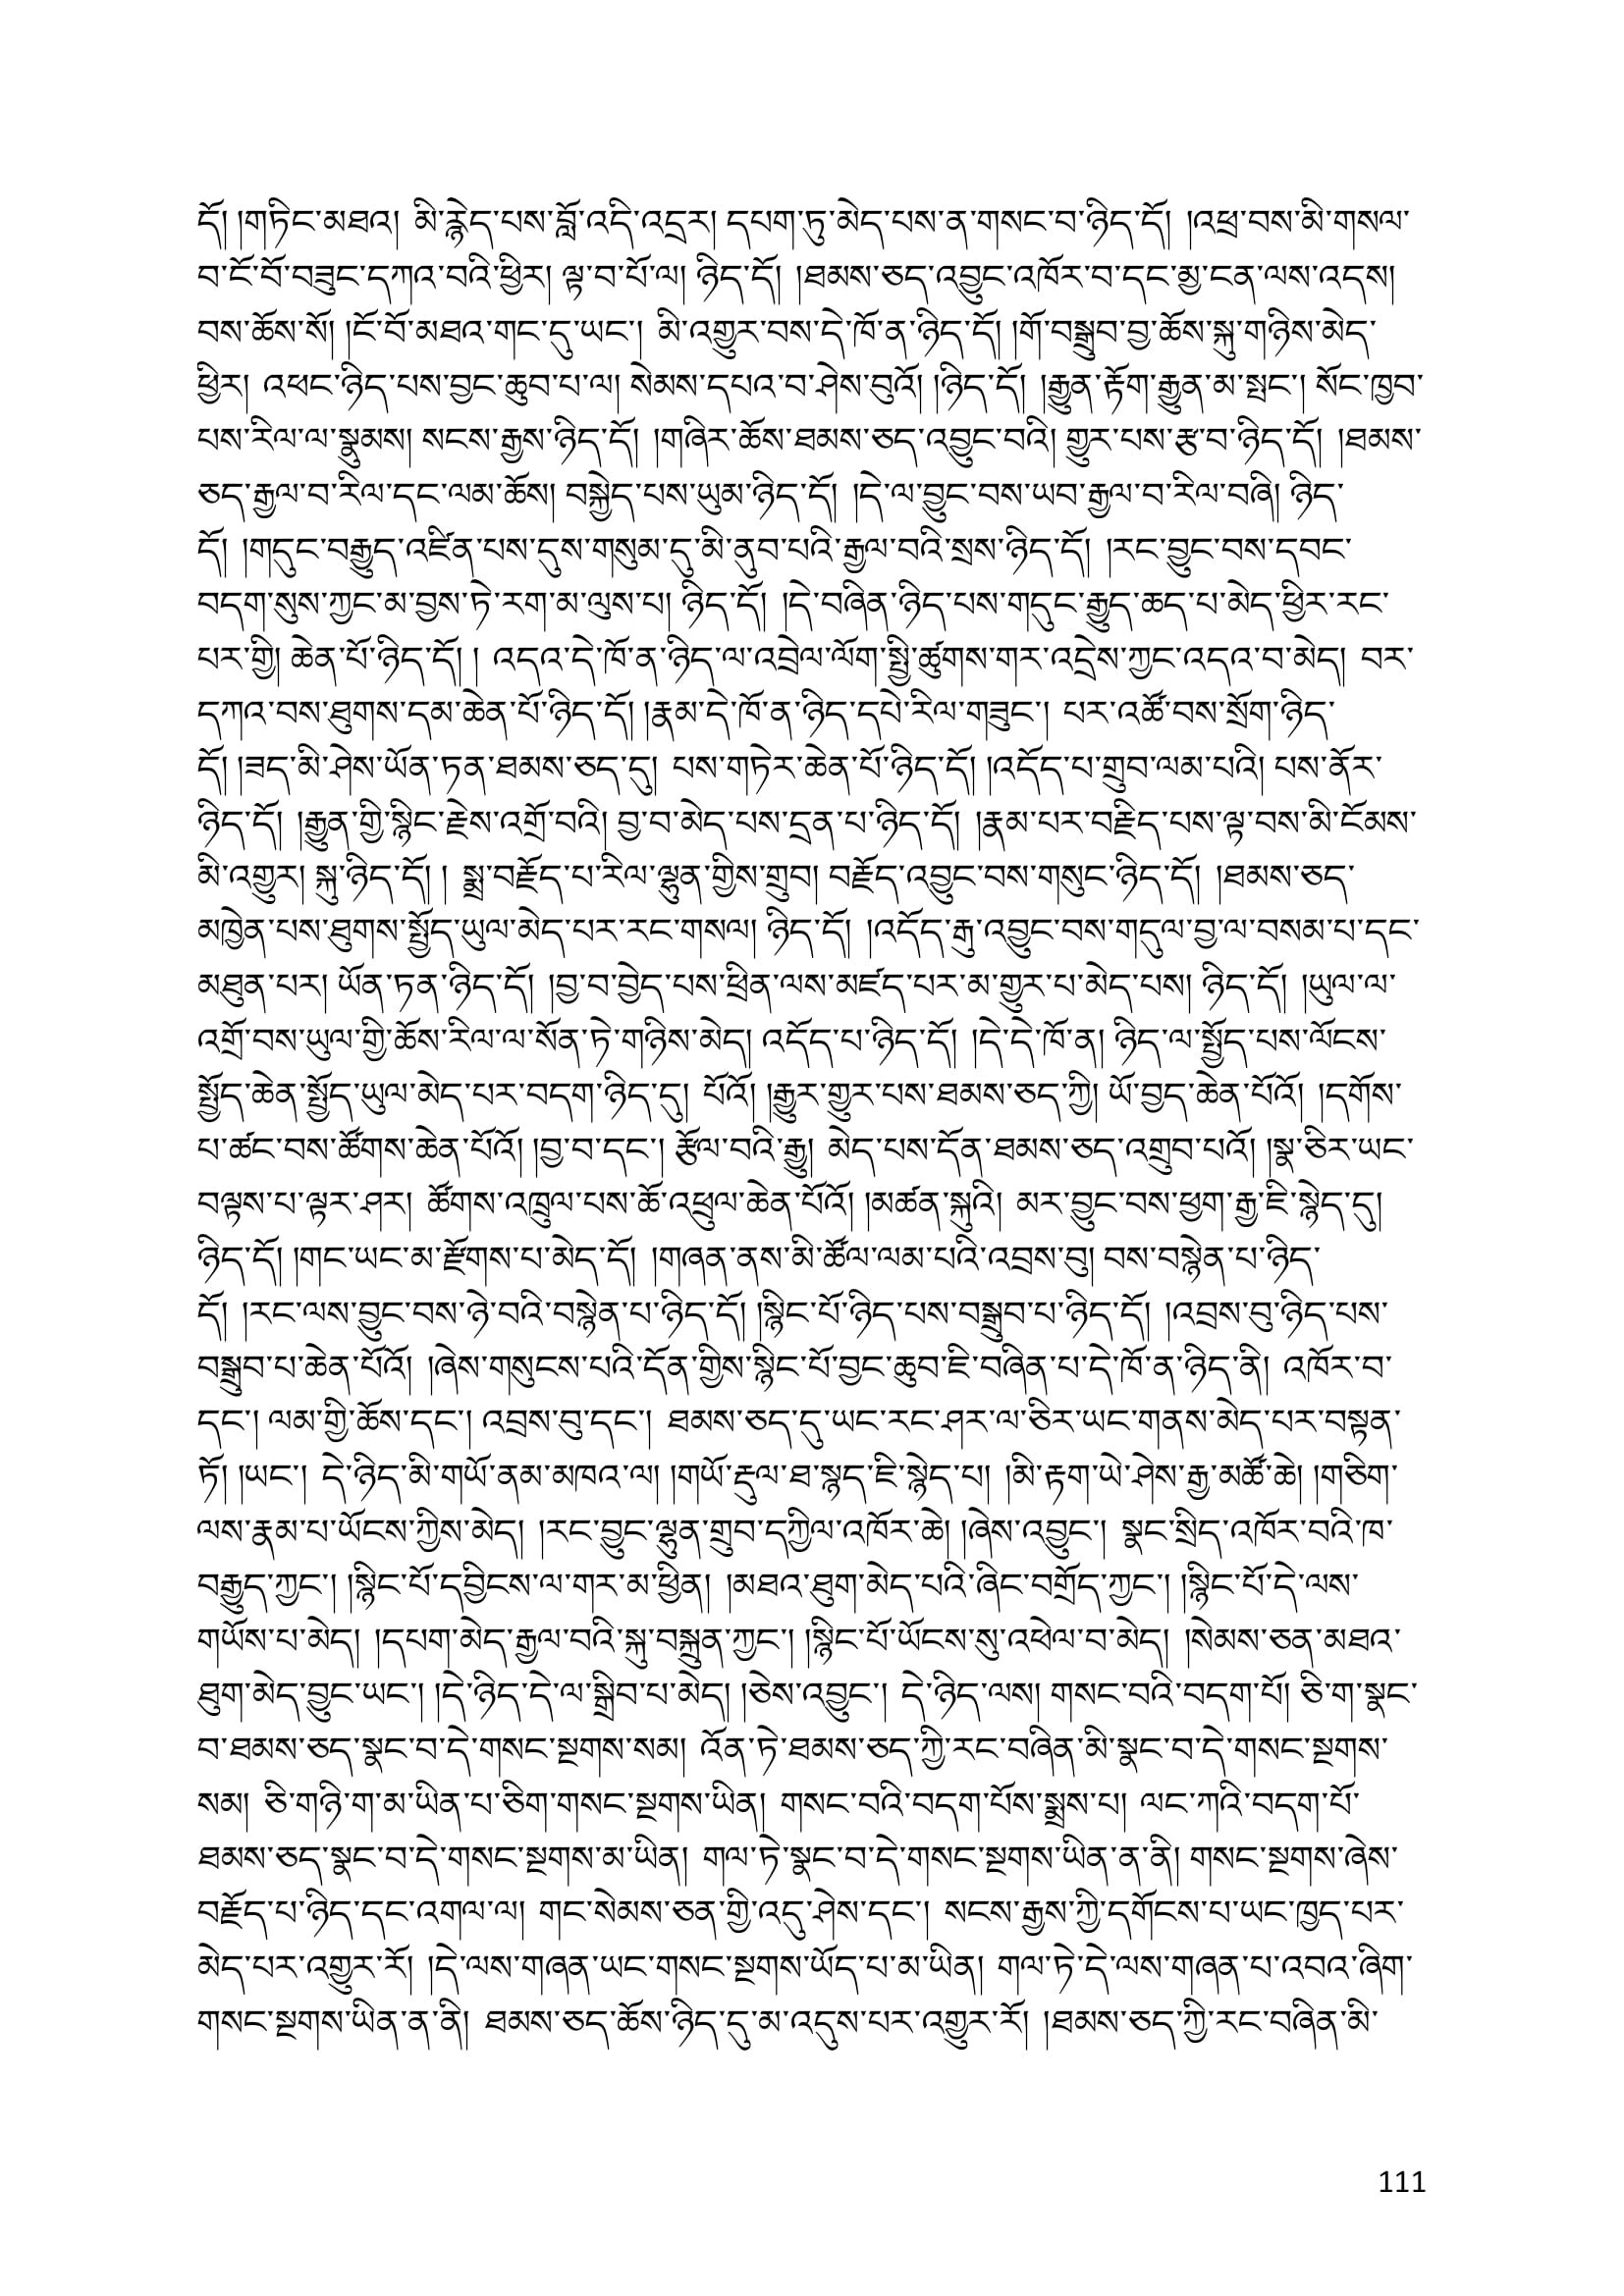 དོ། །གཏིང་མཐའ། མི་རྙེད་པས་བློ་འདི་འདྲར། དཔག་ཏུ་མེད་པས་ན་གསང་བ་ཉིད་དོ། །འཕྲ་བས་མི་གསལ་
བ་ངོ་བོ་བཟུང་དཀའ་བའི་ཕྱིར། ལྟ་བ་པོ་ལ། ཉིད་དོ། །ཐམས་ཅད་འབྱུང་འཁོར་བ་དང་མྱ་ངན་ལས་འདས།
བས་ཆོས་སོ། །ངོ་བོ་མཐའ་གང་དུ་ཡང་། མི་འགྱུར་བས་དེ་ཁོ་ན་ཉིད་དོ། །གོ་བསྒྲུབ་བྱ་ཆོས་སྐུ་གཉིས་མེད་
ཕྱིར། འཕང་ཉིད་པས་བྱང་ཆུབ་པ་ལ། སེམས་དཔའ་བ་ཤེས་བུའོ། །ཉིད་དོ། །རྒྱུན་རྟོག་རྒྱུན་མ་སྤང་། སོང་ཁྱབ་
པས་རིལ་ལ་སྙུམས། སངས་རྒྱས་ཉིད་དོ། །གཞིར་ཆོས་ཐམས་ཅད་འབྱུང་བའི། གྱུར་པས་རྩ་བ་ཉིད་དོ། །ཐམས་
ཅད་རྒྱལ་བ་རིལ་དང་ལམ་ཆོས། བསྐྱེད་པས་ཡུམ་ཉིད་དོ། །དེ་ལ་བྱུང་བས་ཡབ་རྒྱལ་བ་རིལ་བཞི། ཉིད་
དོ། །གདུང་བརྒྱུད་འཛིན་པས་དུས་གསུམ་དུ་མི་ནུབ་པའི་རྒྱལ་བའི་སྲས་ཉིད་དོ། །རང་བྱུང་བས་དབང་
བདག་སུས་ཀྱང་མ་བྱས་ཏེ་རག་མ་ལུས་པ། ཉིད་དོ། །དེ་བཞིན་ཉིད་པས་གདུང་རྒྱུད་ཆད་པ་མེད་ཕྱིར་རང་
པར་གྱི། ཆེན་པོ་ཉིད་དོ། ། འདའ་དེ་ཁོ་ན་ཉིད་ལ་འབྲེལ་ལོག་སྤྱི་ཚུགས་གར་འདྲེས་ཀྱང་འདའ་བ་མེད། བར་
དཀའ་བས་ཐུགས་དམ་ཆེན་པོ་ཉིད་དོ། །རྣམ་དེ་ཁོ་ན་ཉིད་དཔེ་རིལ་གཟུང་། པར་འཚོ་བས་སྲོག་ཉིད་
དོ། །ཟད་མི་ཤེས་ཡོན་ཏན་ཐམས་ཅད་དུ། པས་གཏེར་ཆེན་པོ་ཉིད་དོ། །འདོད་པ་གྲུབ་ལམ་པའི། པས་ནོར་
ཉིད་དོ། །རྒྱུན་གྱི་སྙིང་རྗེས་འགྲོ་བའི། བྱ་བ་མེད་པས་དྲན་པ་ཉིད་དོ། །རྣམ་པར་བརྗིད་པས་ལྟ་བས་མི་ངོམས་
མི་འགྱུར། སྐུ་ཉིད་དོ། ། སྨྲ་བརྗོད་པ་རིལ་ལྷུན་གྱིས་གྲུབ། བརྗོད་འབྱུང་བས་གསུང་ཉིད་དོ། །ཐམས་ཅད་
མཁྱེན་པས་ཐུགས་སྤྱོད་ཡུལ་མེད་པར་རང་གསལ། ཉིད་དོ། །འདོད་རྒུ་འབྱུང་བས་གདུལ་བྱ་ལ་བསམ་པ་དང་
མཐུན་པར། ཡོན་ཏན་ཉིད་དོ། །བྱ་བ་བྱེད་པས་ཕྲིན་ལས་མཛད་པར་མ་གྱུར་པ་མེད་པས། ཉིད་དོ། །ཡུལ་ལ་
འགྲོ་བས་ཡུལ་གྱི་ཆོས་རིལ་ལ་སོན་ཏེ་གཉིས་མེད། འདོད་པ་ཉིད་དོ། །དེ་དེ་ཁོ་ན། ཉིད་ལ་སྤྱོད་པས་ལོངས་
སྤྱོད་ཆེན་སྤྱོད་ཡུལ་མེད་པར་བདག་ཉིད་དུ། པོའོ། །རྒྱུར་གྱུར་པས་ཐམས་ཅད་ཀྱི། ཡོ་བྱད་ཆེན་པོའོ། །དགོས་
པ་ཚང་བས་ཚོགས་ཆེན་པོའོ། །བྱ་བ་དང་། རྩོལ་བའི་རྒྱུ། མེད་པས་དོན་ཐམས་ཅད་འགྲུབ་པའོ། །སྣ་ཅིར་ཡང་
བལྟས་པ་ལྟར་ཤར། ཚོགས་འཁྲུལ་པས་ཆོ་འཕྲུལ་ཆེན་པོའོ། །མཚན་སྐུའི། མར་བྱུང་བས་ཕྱག་རྒྱ་ཇི་སྙེད་དུ།
ཉིད་དོ། །གང་ཡང་མ་རྫོགས་པ་མེད་དོ། །གཞན་ནས་མི་ཚོལ་ལམ་པའི་འབྲས་བུ། བས་བསྙེན་པ་ཉིད་
དོ། །རང་ལས་བྱུང་བས་ཉེ་བའི་བསྙེན་པ་ཉིད་དོ། །སྙིང་པོ་ཉིད་པས་བསྒྲུབ་པ་ཉིད་དོ། །འབྲས་བུ་ཉིད་པས་
བསྒྲུབ་པ་ཆེན་པོའོ། །ཞེས་གསུངས་པའི་དོན་གྱིས་སྙིང་པོ་བྱང་ཆུབ་ཇི་བཞིན་པ་དེ་ཁོ་ན་ཉིད་ནི། འཁོར་བ་
དང་། ལམ་གྱི་ཆོས་དང་། འབྲས་བུ་དང་། ཐམས་ཅད་དུ་ཡང་རང་ཤར་ལ་ཅིར་ཡང་གནས་མེད་པར་བསྟན་
ཏོ། །ཡང་། དེ་ཉིད་མི་གཡོ་ནམ་མཁའ་ལ། །གཡོ་རྡུལ་ཐ་སྙད་ཇི་སྙེད་པ། །མི་རྟག་ཡེ་ཤེས་རྒྱ་མཚོ་ཆེ། །གཅིག་
ལས་རྣམ་པ་ཡོངས་ཀྱིས་མེད། །རང་བྱུང་ལྷུན་གྲུབ་དཀྱིལ་འཁོར་ཆེ། །ཞེས་འབྱུང་། སྣང་སྲིད་འཁོར་བའི་ཁ་
བརྒྱུད་ཀྱང་། །སྙིང་པོ་དབྱིངས་ལ་གར་མ་ཕྱིན། །མཐའ་ཐུག་མེད་པའི་ཞིང་བགྲོད་ཀྱང་། །སྙིང་པོ་དེ་ལས་
གཡོས་པ་མེད། །དཔག་མེད་རྒྱལ་བའི་སྐུ་བསྐྲུན་ཀྱང་། །སྙིང་པོ་ཡོངས་སུ་འཕེལ་བ་མེད། །སེམས་ཅན་མཐའ་
ཐུག་མེད་བྱུང་ཡང་། །དེ་ཉིད་དེ་ལ་སྒྲིབ་པ་མེད། །ཅེས་འབྱུང་། དེ་ཉིད་ལས། གསང་བའི་བདག་པོ། ཅི་ག་སྣང་
བ་ཐམས་ཅད་སྣང་བ་དེ་གསང་སྔགས་སམ། འོན་ཏེ་ཐམས་ཅད་ཀྱི་རང་བཞིན་མི་སྣང་བ་དེ་གསང་སྔགས་
སམ། ཅི་གཉི་ག་མ་ཡིན་པ་ཅིག་གསང་སྔགས་ཡིན། གསང་བའི་བདག་པོས་སྨྲས་པ། ལང་ཀའི་བདག་པོ་
ཐམས་ཅད་སྣང་བ་དེ་གསང་སྔགས་མ་ཡིན། གལ་ཏེ་སྣང་བ་དེ་གསང་སྔགས་ཡིན་ན་ནི། གསང་སྔགས་ཞེས་
བརྗོད་པ་ཉིད་དང་འགལ་ལ། གང་སེམས་ཅན་གྱི་འདུ་ཤེས་དང་། སངས་རྒྱས་ཀྱི་དགོངས་པ་ཡང་ཁྱད་པར་
མེད་པར་འགྱུར་རོ། །དེ་ལས་གཞན་ཡང་གསང་སྔགས་ཡོད་པ་མ་ཡིན། གལ་ཏེ་དེ་ལས་གཞན་པ་འབའ་ཞིག་
གསང་སྔགས་ཡིན་ན་ནི། ཐམས་ཅད་ཆོས་ཉིད་དུ་མ་འདུས་པར་འགྱུར་རོ། །ཐམས་ཅད་ཀྱི་རང་བཞིན་མི་
111